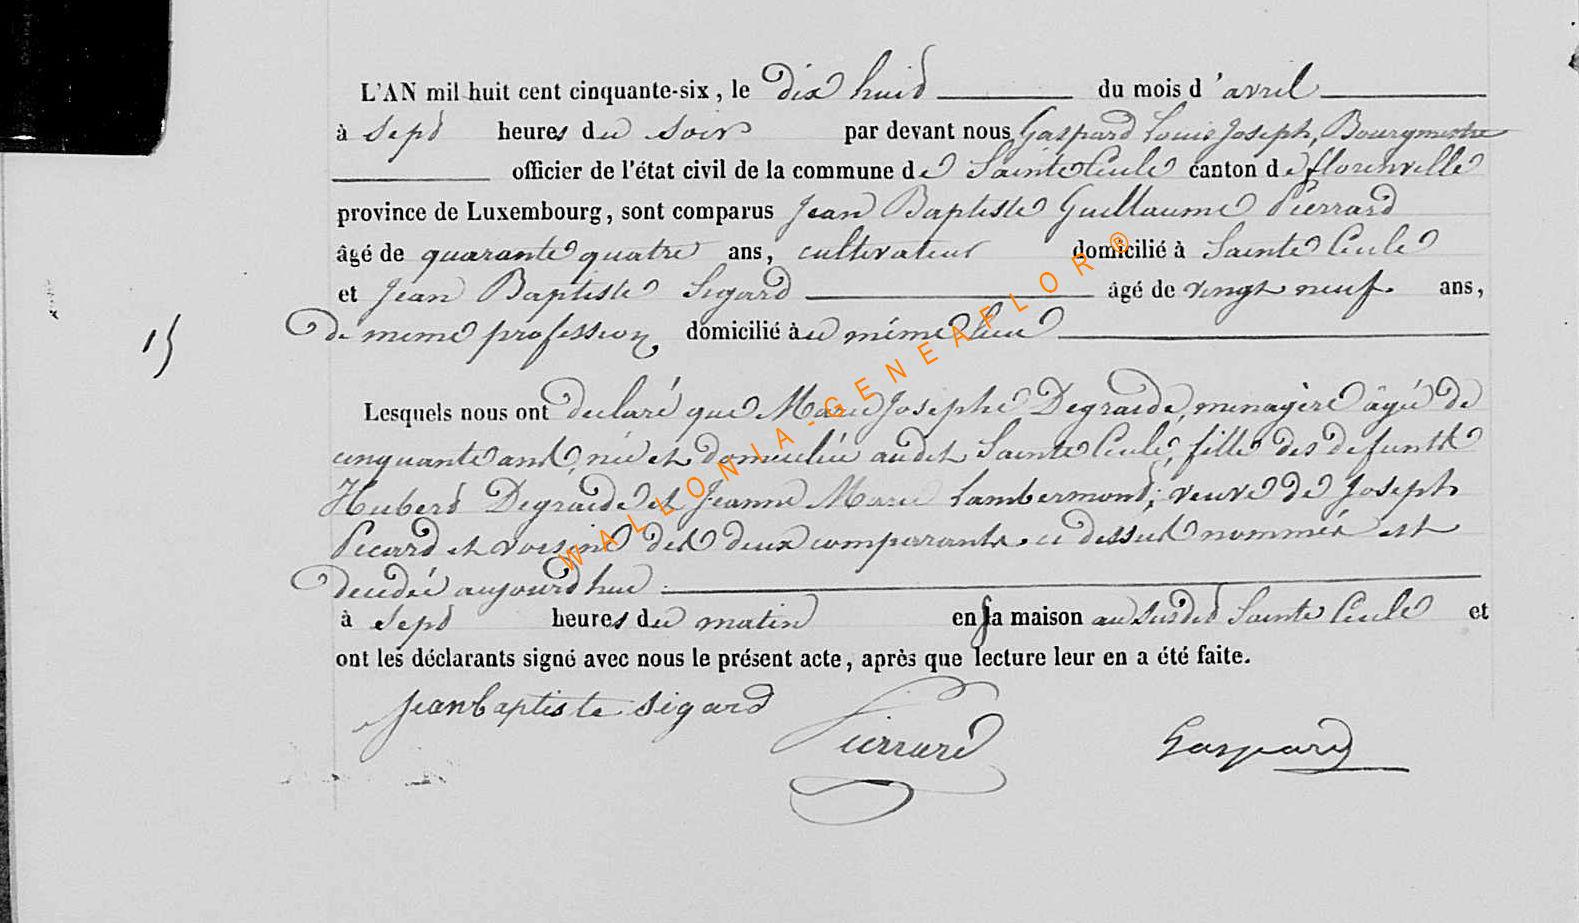 L'AN mil huit cent cinquante-six, le dix huit du mois d'avril
à sept heures du soir par devant nous Gaspard Louis Joseph, Bourgmestre
officier de l'état civil de la commune de Sainte Cécile canton de florenville
province de Luxembourg, sont comparus Jean Baptiste Guillaume Pierrard
âgé de quarante quatre ans, cultivateur domicilié à Sainte Cécile
et Jean Baptiste Sigard âgé de vingt neuf ans,
de meme profession, domicilié au même lieu
15
Lesquels nous ont declaré que Marie Josephe Degraide, menagère âgée de
cinquante ans, née et domiciliée audit Sainte Cécile, fille des defunts
Hubert Degraide et Jeanne Marie Lambermont; veuve de Joseph
Picard et voisine des deux comparants ci dessus nommés est
decedée aujourd'hui
à sept heures du matin en sa maison au susdit Sainte Cécile et
ont les déclarants signé avec nous le présent acte, après que lecture leur en a été faite.
Jean baptiste sigard Pierrard Gaspard
WALLONIA-GENEAFLOR®